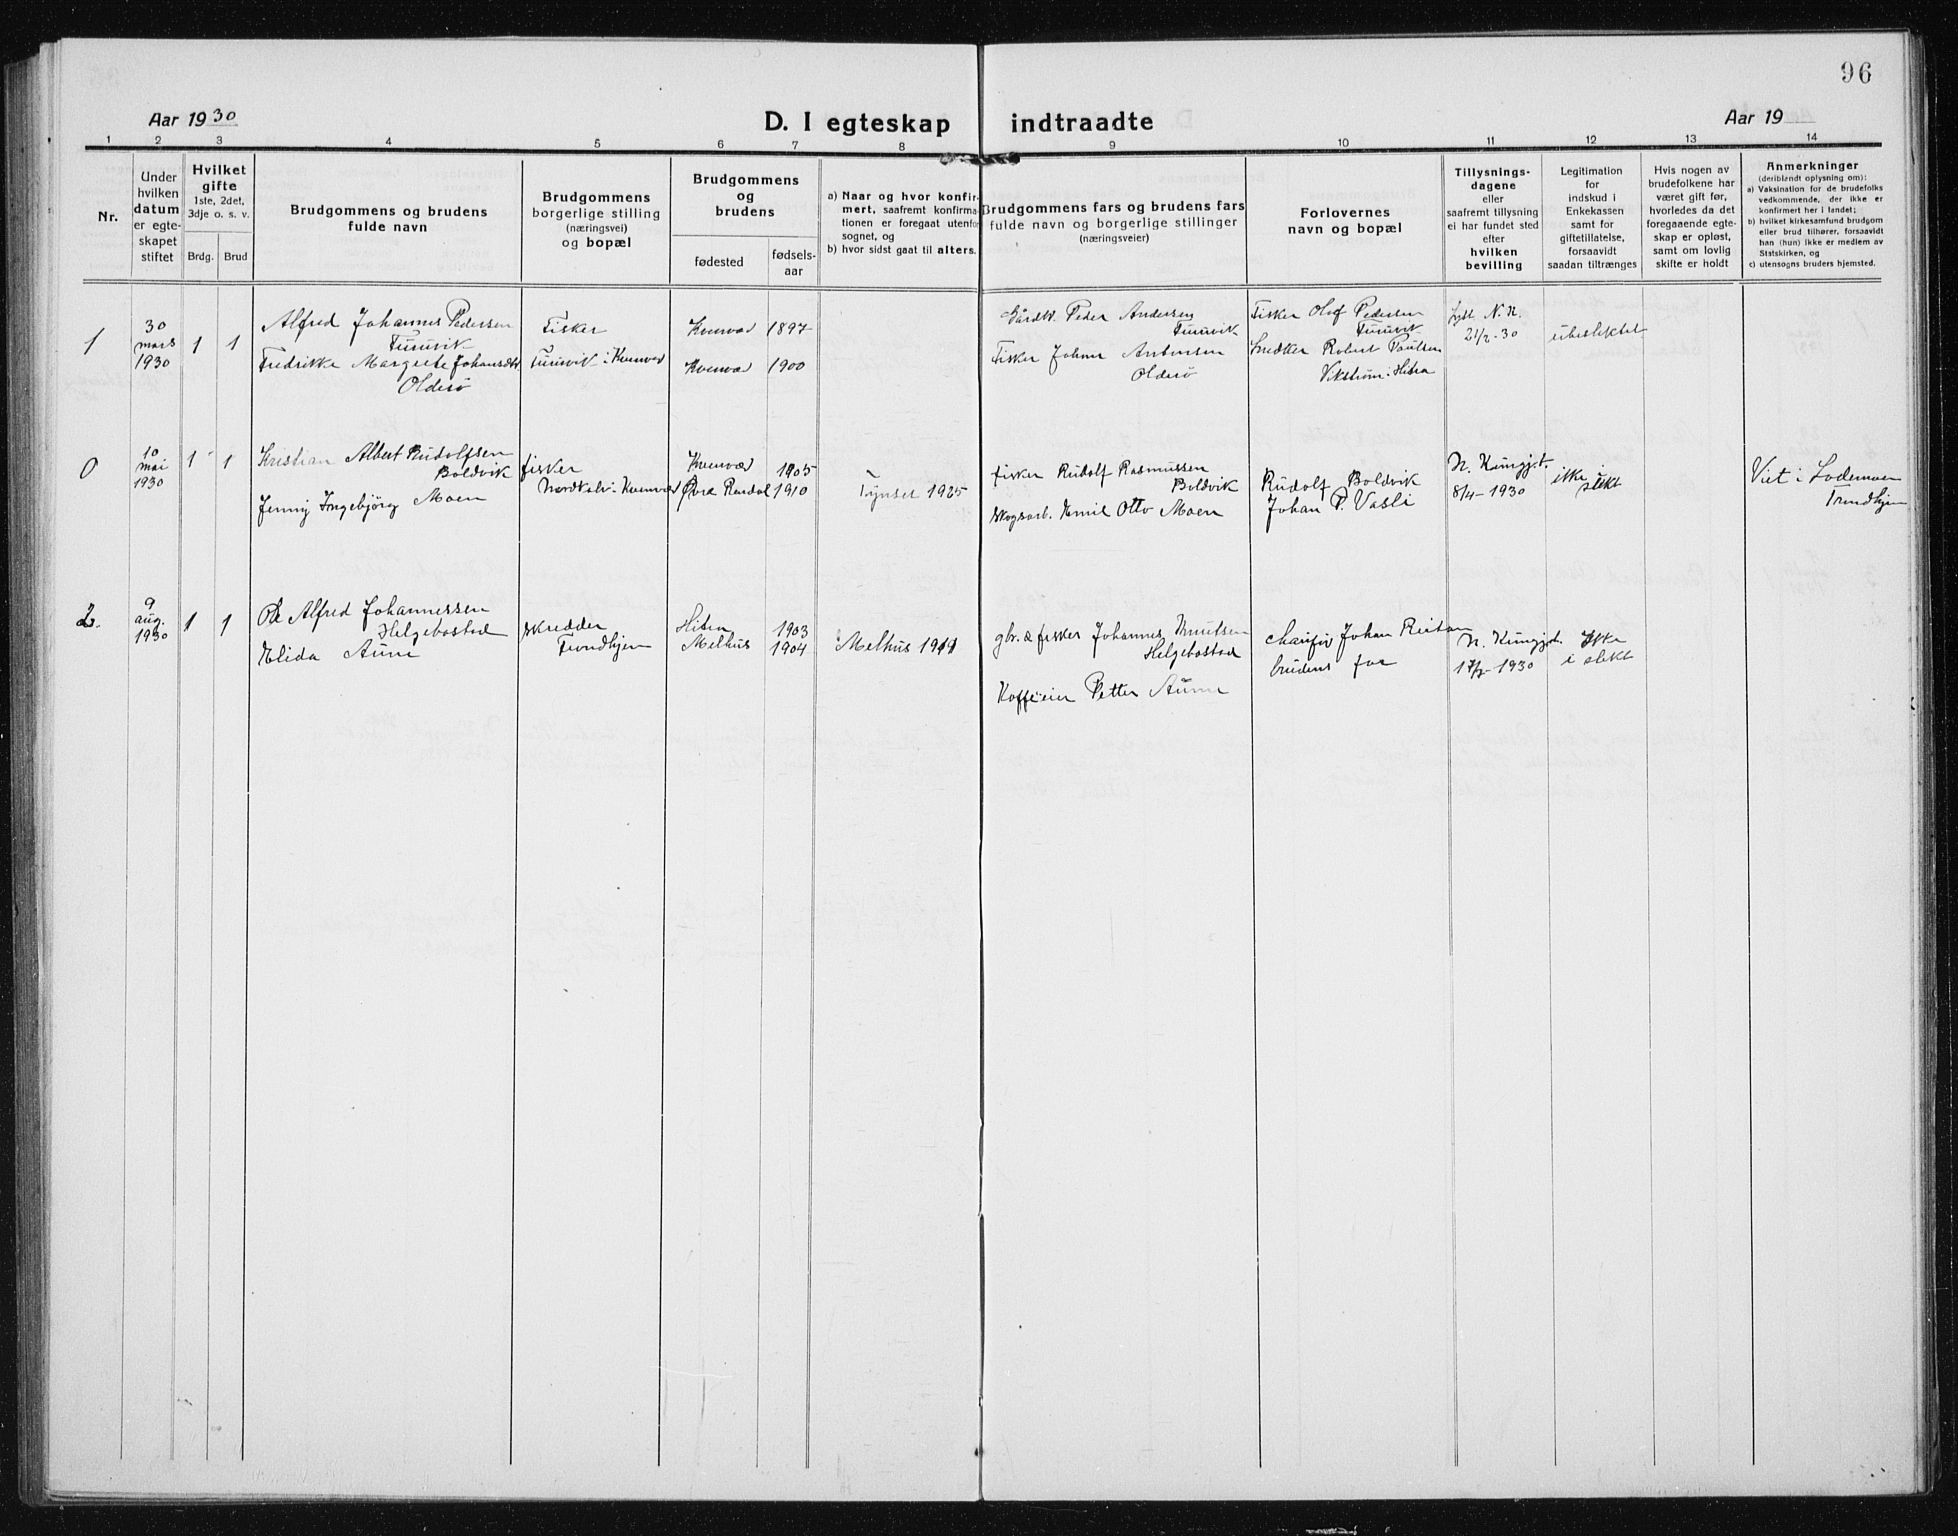 96
Aar 1930
D. I egteskap indtraadte
Aar 19
1 2 3 4 5 6 7 8 9 10 11 12 13 14
Nr.
Under
hvilken
datum
er egte-
skapet
stiftet
Hvilket
gifte
1ste, 2det,
3dje o. s. v.
Brdg. Brud
Brudgommens og brudens
fulde navn
Brudgommens
borgerlige stilling
(næringsvei)
og bopæl
Brudgommens
og
brudens
fødested
fødsels-
aar
a) Naar og hvor konfir-
mert, saafremt konfirma-
tionen er foregaat utenfor
sognet, og
b) hvor sidst gaat til alters.
Brudgommens fars og brudens fars
fulde navn og borgerlige stillinger
(næringsveier)
Forlovernes
navn og bopæl
Tillysnings-
dagene
eller
saafremt tillysning
ei har fundet sted
efter
hvilken
bevilling
Legitimation
for
indskud i
Enkekassen
samt for
giftetillatelse,
forsaavidt
saadan tiltrænges
Hvis nogen av
brudefolkene har
været gift før,
hvorledes da det
foregaaende egte-
skap er opløst,
samt om lovlig
skifte er holdt
Anmerkninger
(deriblendt oplysning om):
a) Vaksination for de brudefolks
vedkommende, der ikke er
konfirmert her i landet;
b) hvilket kirkesamfund brudgom
eller brud tilhører, forsaavidt
han (hun) ikke er medlem av
Statskirken, og
c) utensogns bruders hjemsted.
1
30
mars
1930
1 1
Alfred Johannes Pedersen
Furuvik
Fredrikke Margrete Johansdtr
Olderø
Fisker
Furuvik i Kvenvær
Kvenvær 1897
Kvenvær 1900
Gårdbr. Peder Andersen
Furuvik
Fisker Johan Antonsen
Olderø
Fisker Olof Pedersen
Furuvik
Snedker Robert Paulsen
Vikstrøm i Hitra
lyst N. K.
21/2-30
ubeslektet
0
10
mai
1930
1 1
Kristian Albert Rudolfsen
Boldvik
Jenny Ingebjørg Moen
fisker
Nordkalv i Kvenvær
Kvenvær 1905
Øvre Rendal 1910
Tynset 1925
fisker Rudolf Rasmussen
Boldvik
skogsarb. Emil Otto Moen
Rudolf Boldvik
Johan P. Vasli
N. Kungjt.
8/4-1930
ikke i
slekt
Viet i Lademoen
Trondhjem
2.
9
aug.
1930
1 1
Ole Alfred Johannessen
Helgebostad
Elida Aune
skredder
Trondhjem
Hitra 1903
Melhus 1904
Melhus 1919
gbr. & fisker Johannes Knutsen
Helgebostad
Kaffeeier Petter Aune
Johan Reitan
brudens far
N. Kungjt.
17/7-1930
Ikke
i slekt